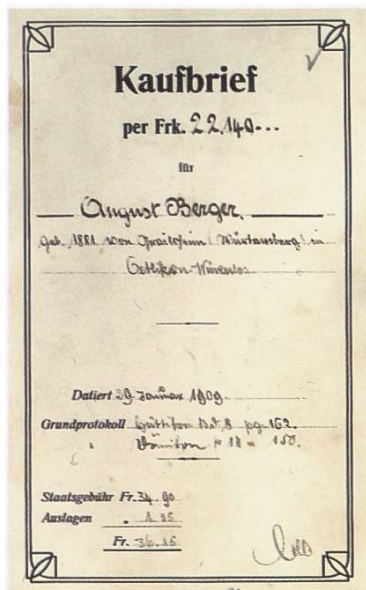 Kaufbrief
per Frk. 22,140.--
für
August Berger.
geb. 1881 von Crailsheim (Württemberg) in
Oetlikon-Würenlos
Datiert 29. Januar 1909.
Grundprotokoll Hüttikon Bd. 8 pg. 162.
" Dänikon " 18 " 150.
Staatsgebühr Fr. 34.90
Auslagen " 1.25
Fr. 36.15